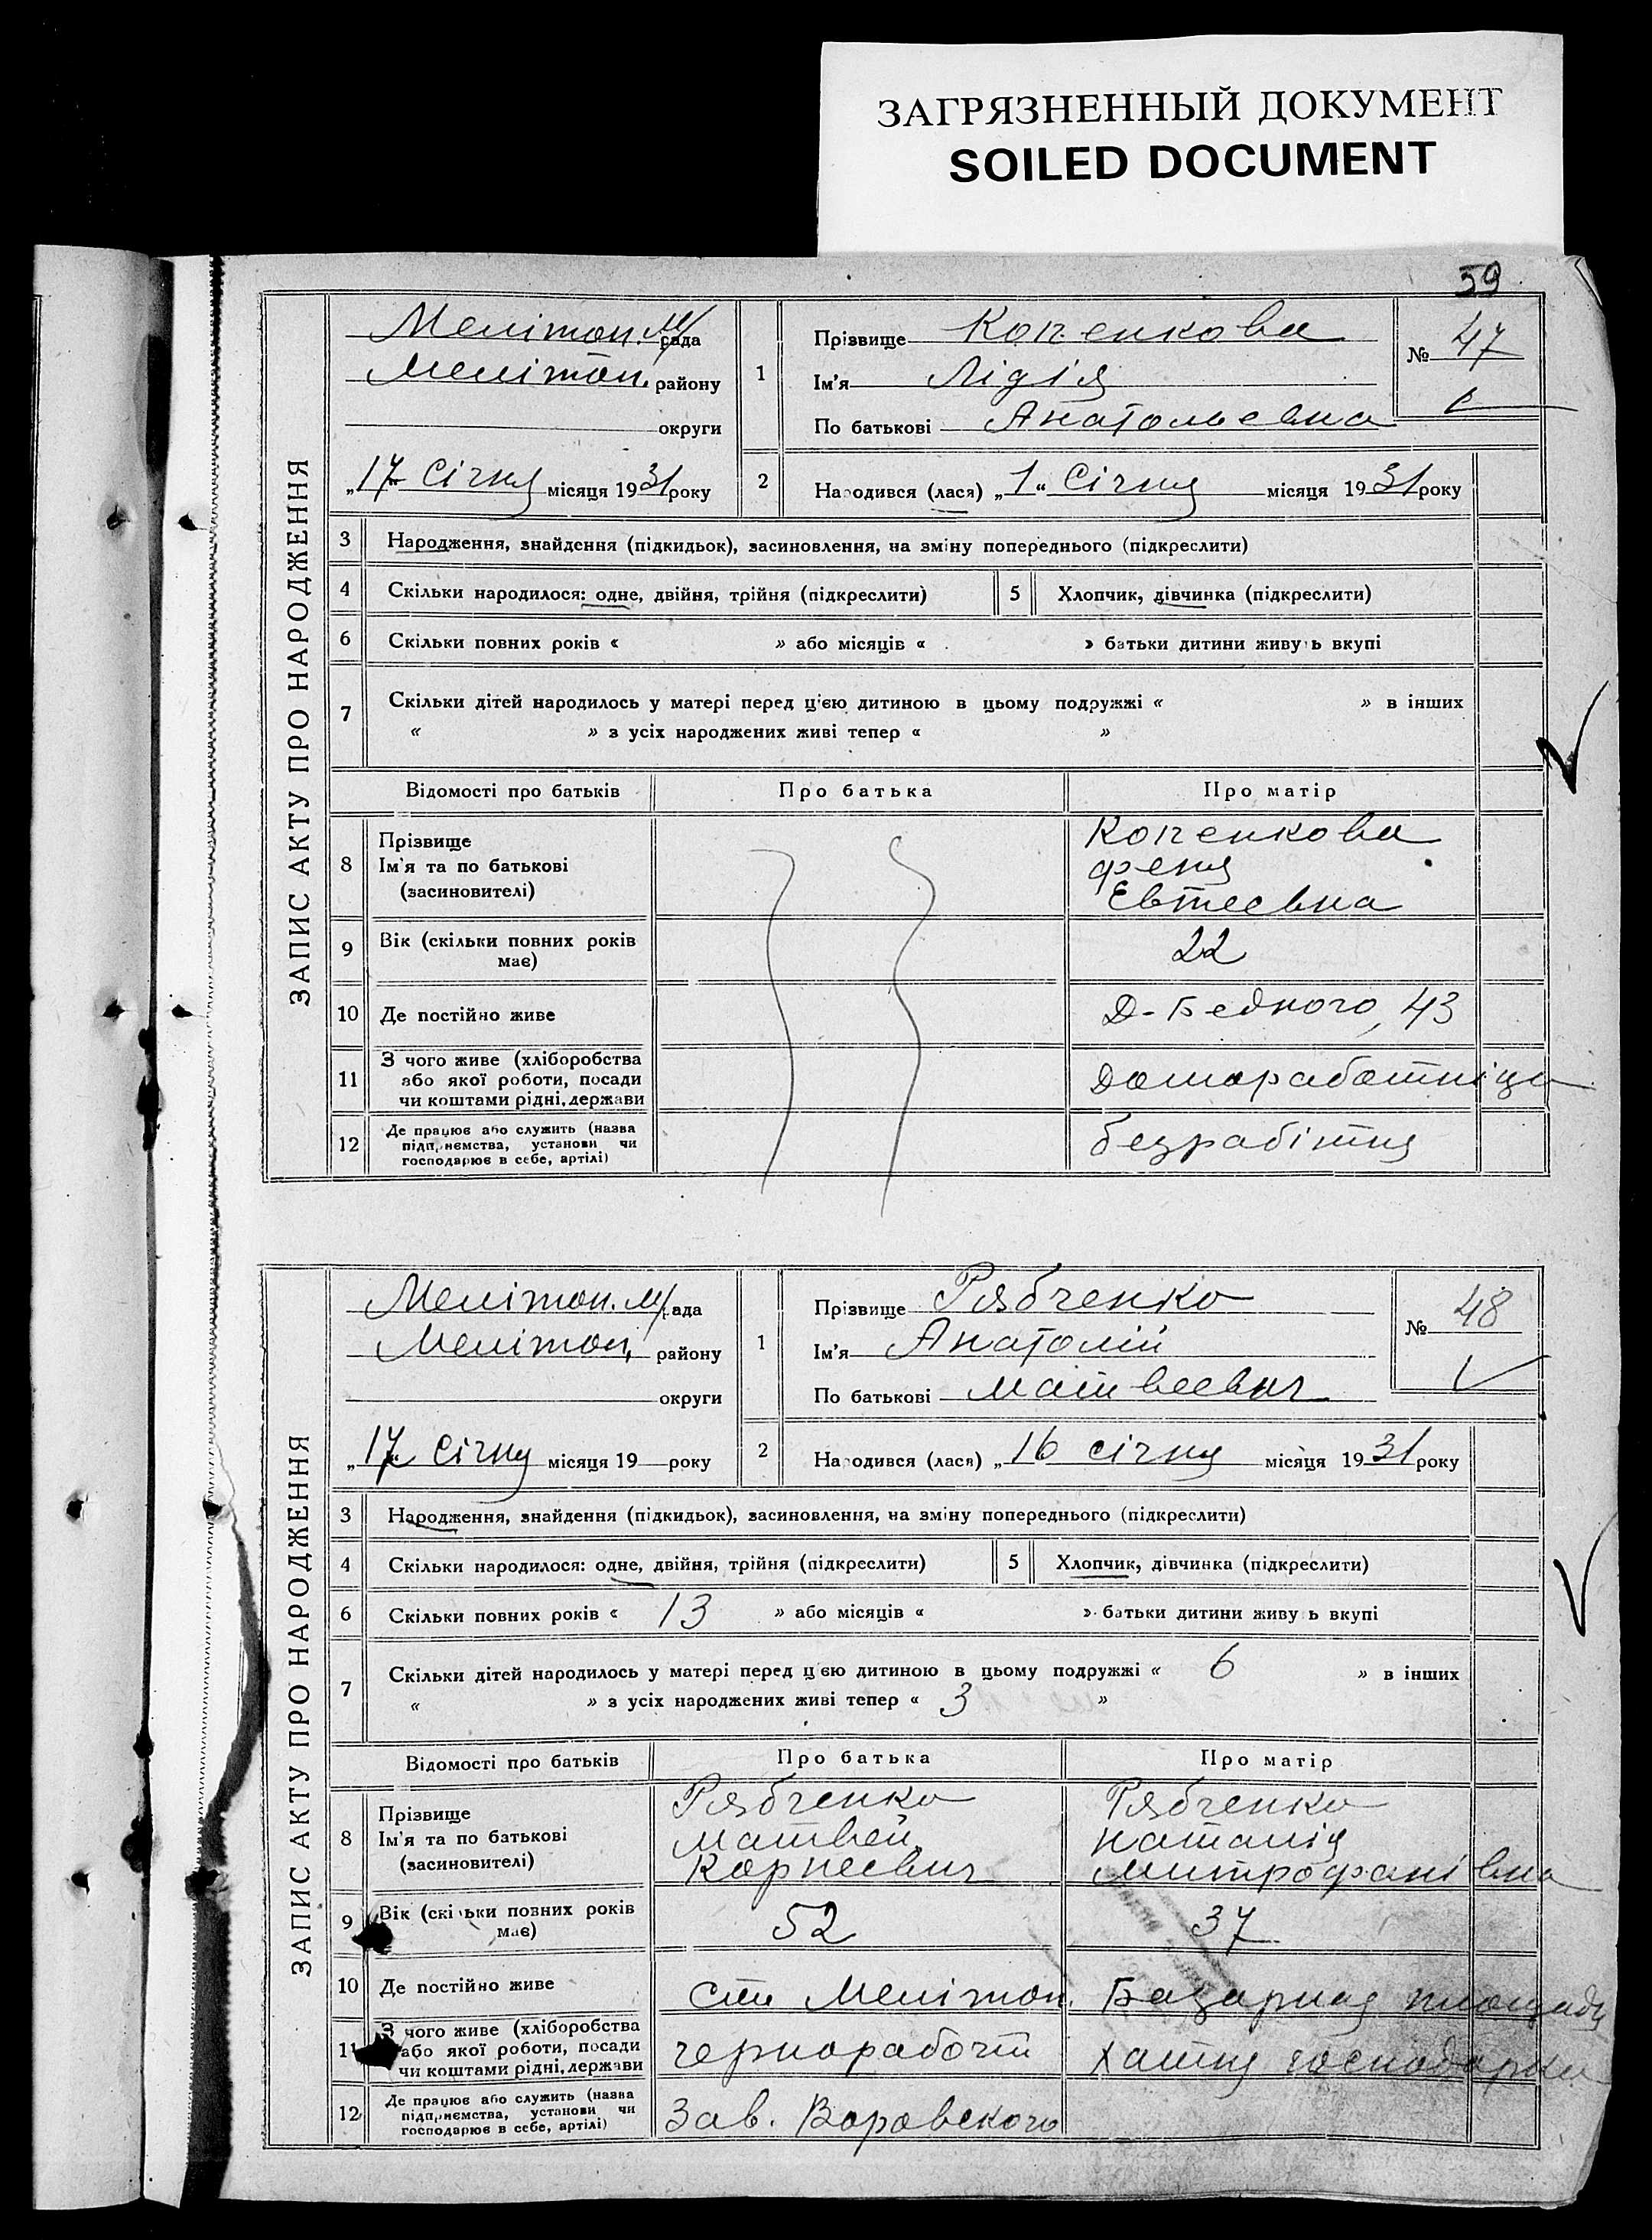 ЗАГРЯЗНЕННЫЙ ДОКУМЕНТ
SOILED DOCUMENT
59
ЗАПИС АКТУ ПРО НАРОДЖЕННЯ
Мелітоп. м/рада
Мелітоп. району
округи
„17“ Січня місяця 1931 року
1
Прізвище Копенкова
Ім'я Лідія
По батькові Анатольевна
№ 47
2
Народився (лася) „1“ Січня місяця 1931 року
3 Народження, знайдення (підкидьок), засиновлення, на зміну попереднього (підкреслити)
4 Скільки народилося: одне, двійня, трійня (підкреслити)
5 Хлопчик, дівчинка (підкреслити)
6 Скільки повних років « » або місяців « » батьки дитини живуть вкупі
7 Скільки дітей народилось у матері перед цією дитиною в цьому подружжі « » в інших
« » з усіх народжених живі тепер « »
Відомості про батьків Про батька Про матір
8 Прізвище
Ім'я та по батькові
(засновителі)
Копенкова
Феня
Евтеевна
9 Вік (скільки повних років
має)
22
10 Де постійно живе
Д-Бедного, 43
11 З чого живе (хліборобства
або якої роботи, посади
чи коштами рідні, держави
Домоработніци
12 Де працює або служить (назва
підприємства, установи чи
господарює в себе, артілі)
безрабітня
ЗАПИС АКТУ ПРО НАРОДЖЕННЯ
Мелітоп. м/рада
Мелітоп, району
округи
„17“ Січня місяця 19 року
1
Прізвище Рябченко
Ім'я Анатолій
По батькові Матвеевич
№ 48
2
Народився (лася) „16 січня місяця 1931 року
3 Народження, знайдення (підкидьок), засиновлення, на зміну попереднього (підкреслити)
4 Скільки народилося: одне, двійня, трійня (підкреслити)
5 Хлопчик, дівчинка (підкреслити)
6 Скільки повних років « 13 » або місяців « » батьки дитини живуть вкупі
7 Скільки дітей народилось у матері перед цією дитиною в цьому подружжі « 6 » в інших
« » з усіх народжених живі тепер « 3 »
Відомості про батьків Про батька Про матір
8 Прізвище
Ім'я та по батькові
(засиновителі)
Рябченко
Матвей
Корнеевич
Рябченко
Наталія
Митрофанівна
9 Вік (скільки повних років
має)
52
37
10 Де постійно живе
Мелітоп. Базарная площадь
11 З чого живе (хліборобства
або якої роботи, посади
чи коштами рідні, держави
чернорабочий
хатня господарка
12 Де працює або служить (назва
підприємства, установи чи
господарює в себе, артілі)
Зав. Воровского